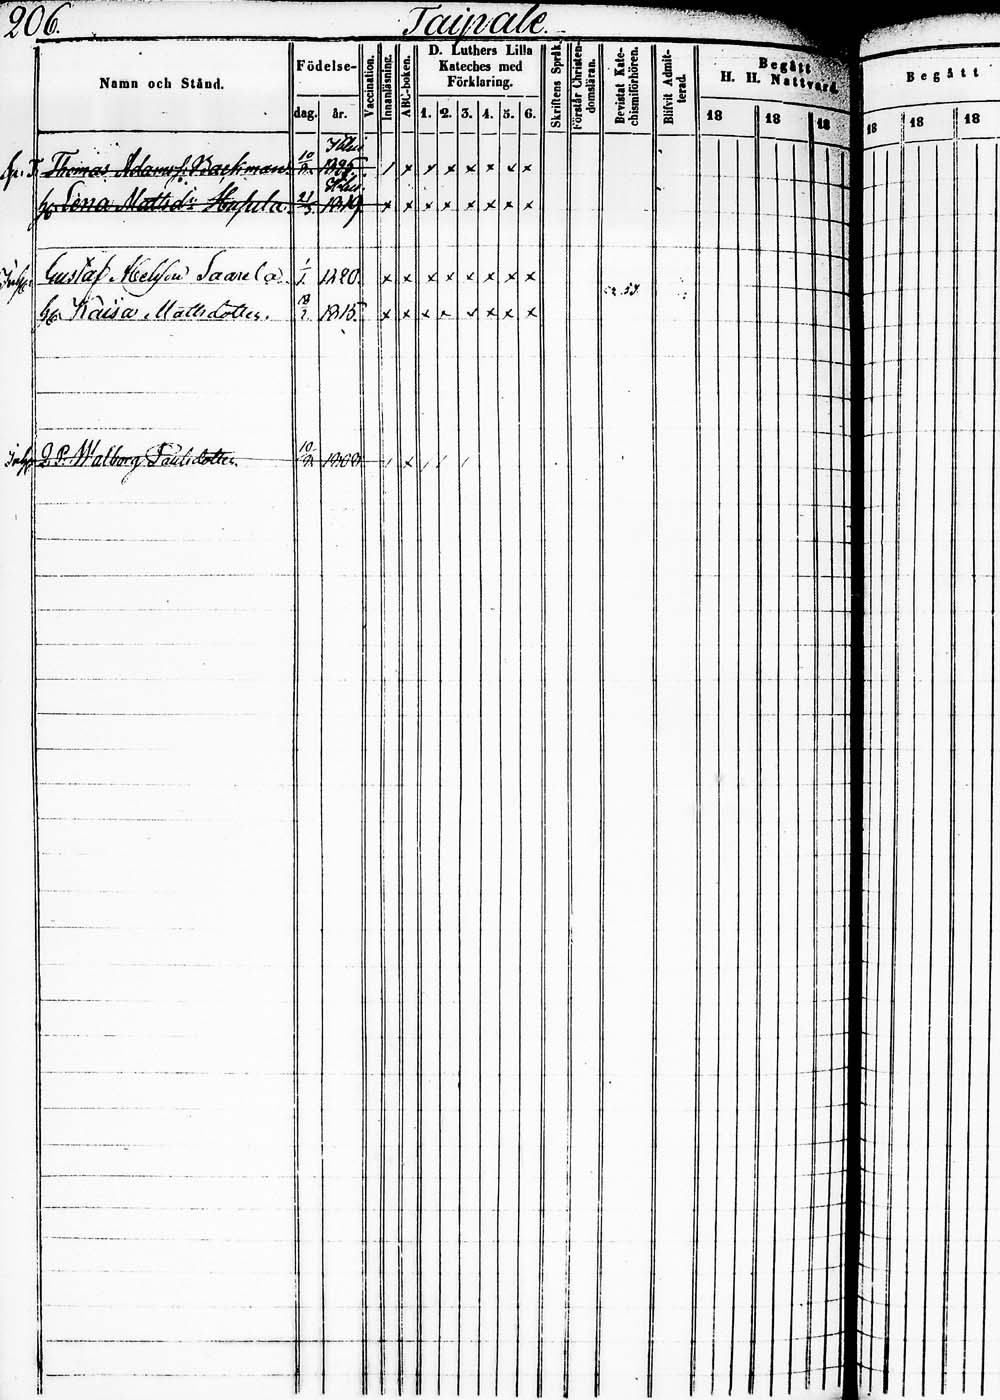 206. Taipale.
Namn och Stånd.
Födelse-
dag. år.
Vaccination.
Innanläsning.
ABC-boken.
D. Luthers Lilla
Kateches med
Förklaring.
1. 2. 3. 4. 5. 6.
Skriftens Språk.
Förstår Christen-
domsläran.
Bevistat Kate-
chismiförhören.
Blifvit Admit-
terad.
Begått
H. H. Nattvard.
18 18 18
Begått
18 18 18
Thomas Adamss. Backman 10 x x x x x x x
Lena Mattsdr 21/3 1819 x x x x x x x x
Gustaf Saarela 1/1 1820 x x x x x x x x
Kaisa Mattsdotter. 1815 x x x x x x x x
53.
Walborg Paulsdotter 10 x